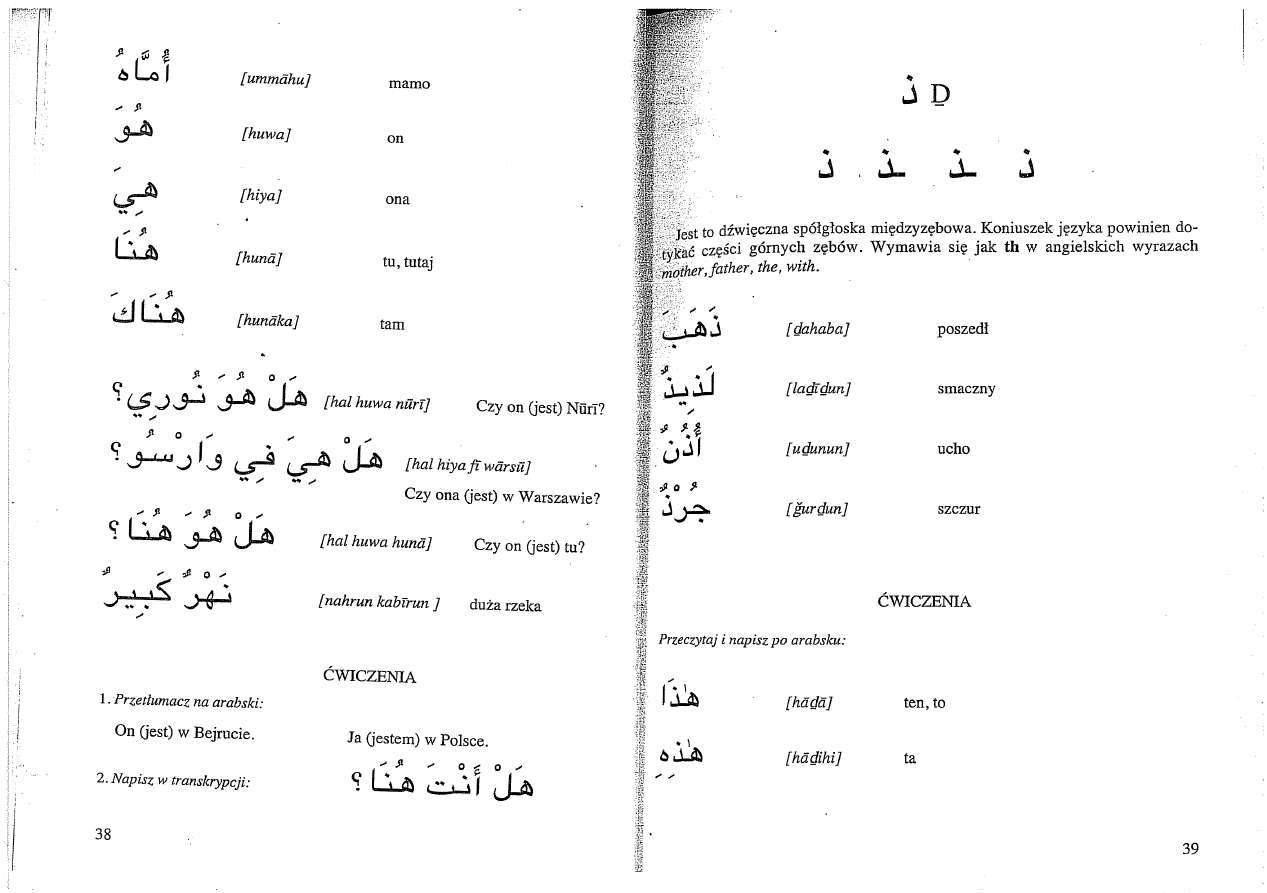 أُمَّاهُ [ummāhu] mamo
هُوَ [huwa] on
هِيَ [hiya] ona
هُنَا [hunā] tu, tutaj
هُنَاكَ [hunāka] tam
هَلْ هُوَ نُورِي؟ [hal huwa nūrī] Czy on (jest) Nūrī?
هَلْ هِيَ فِي وَارْسُو؟ [hal hiya fī wārsū]
Czy ona (jest) w Warszawie?
هَلْ هُوَ هُنَا؟ [hal huwa hunā] Czy on (jest) tu?
نَهْرٌ كَبِيرٌ [nahrun kabīrun ] duża rzeka
ĆWICZENIA
1. Przetłumacz na arabski:
On (jest) w Bejrucie. Ja (jestem) w Polsce.
2. Napisz w transkrypcji: هَلْ أَنْتَ هُنَا؟
38
ذ Ḏ
ذ ـذ ـذ ذ
Jest to dźwięczna spółgłoska międzyzębowa. Koniuszek języka powinien do-
tykać części górnych zębów. Wymawia się jak th w angielskich wyrazach
mother, father, the, with.
ذَهَبَ [ḏahaba] poszedł
لَذِيذٌ [laḏīḏun] smaczny
أُذُنٌ [uḏunun] ucho
جُرْذٌ [ǧurḏun] szczur
ĆWICZENIA
Przeczytaj i napisz po arabsku:
هٰذَا [hāḏā] ten, to
هٰذِهِ [hāḏihi] ta
39